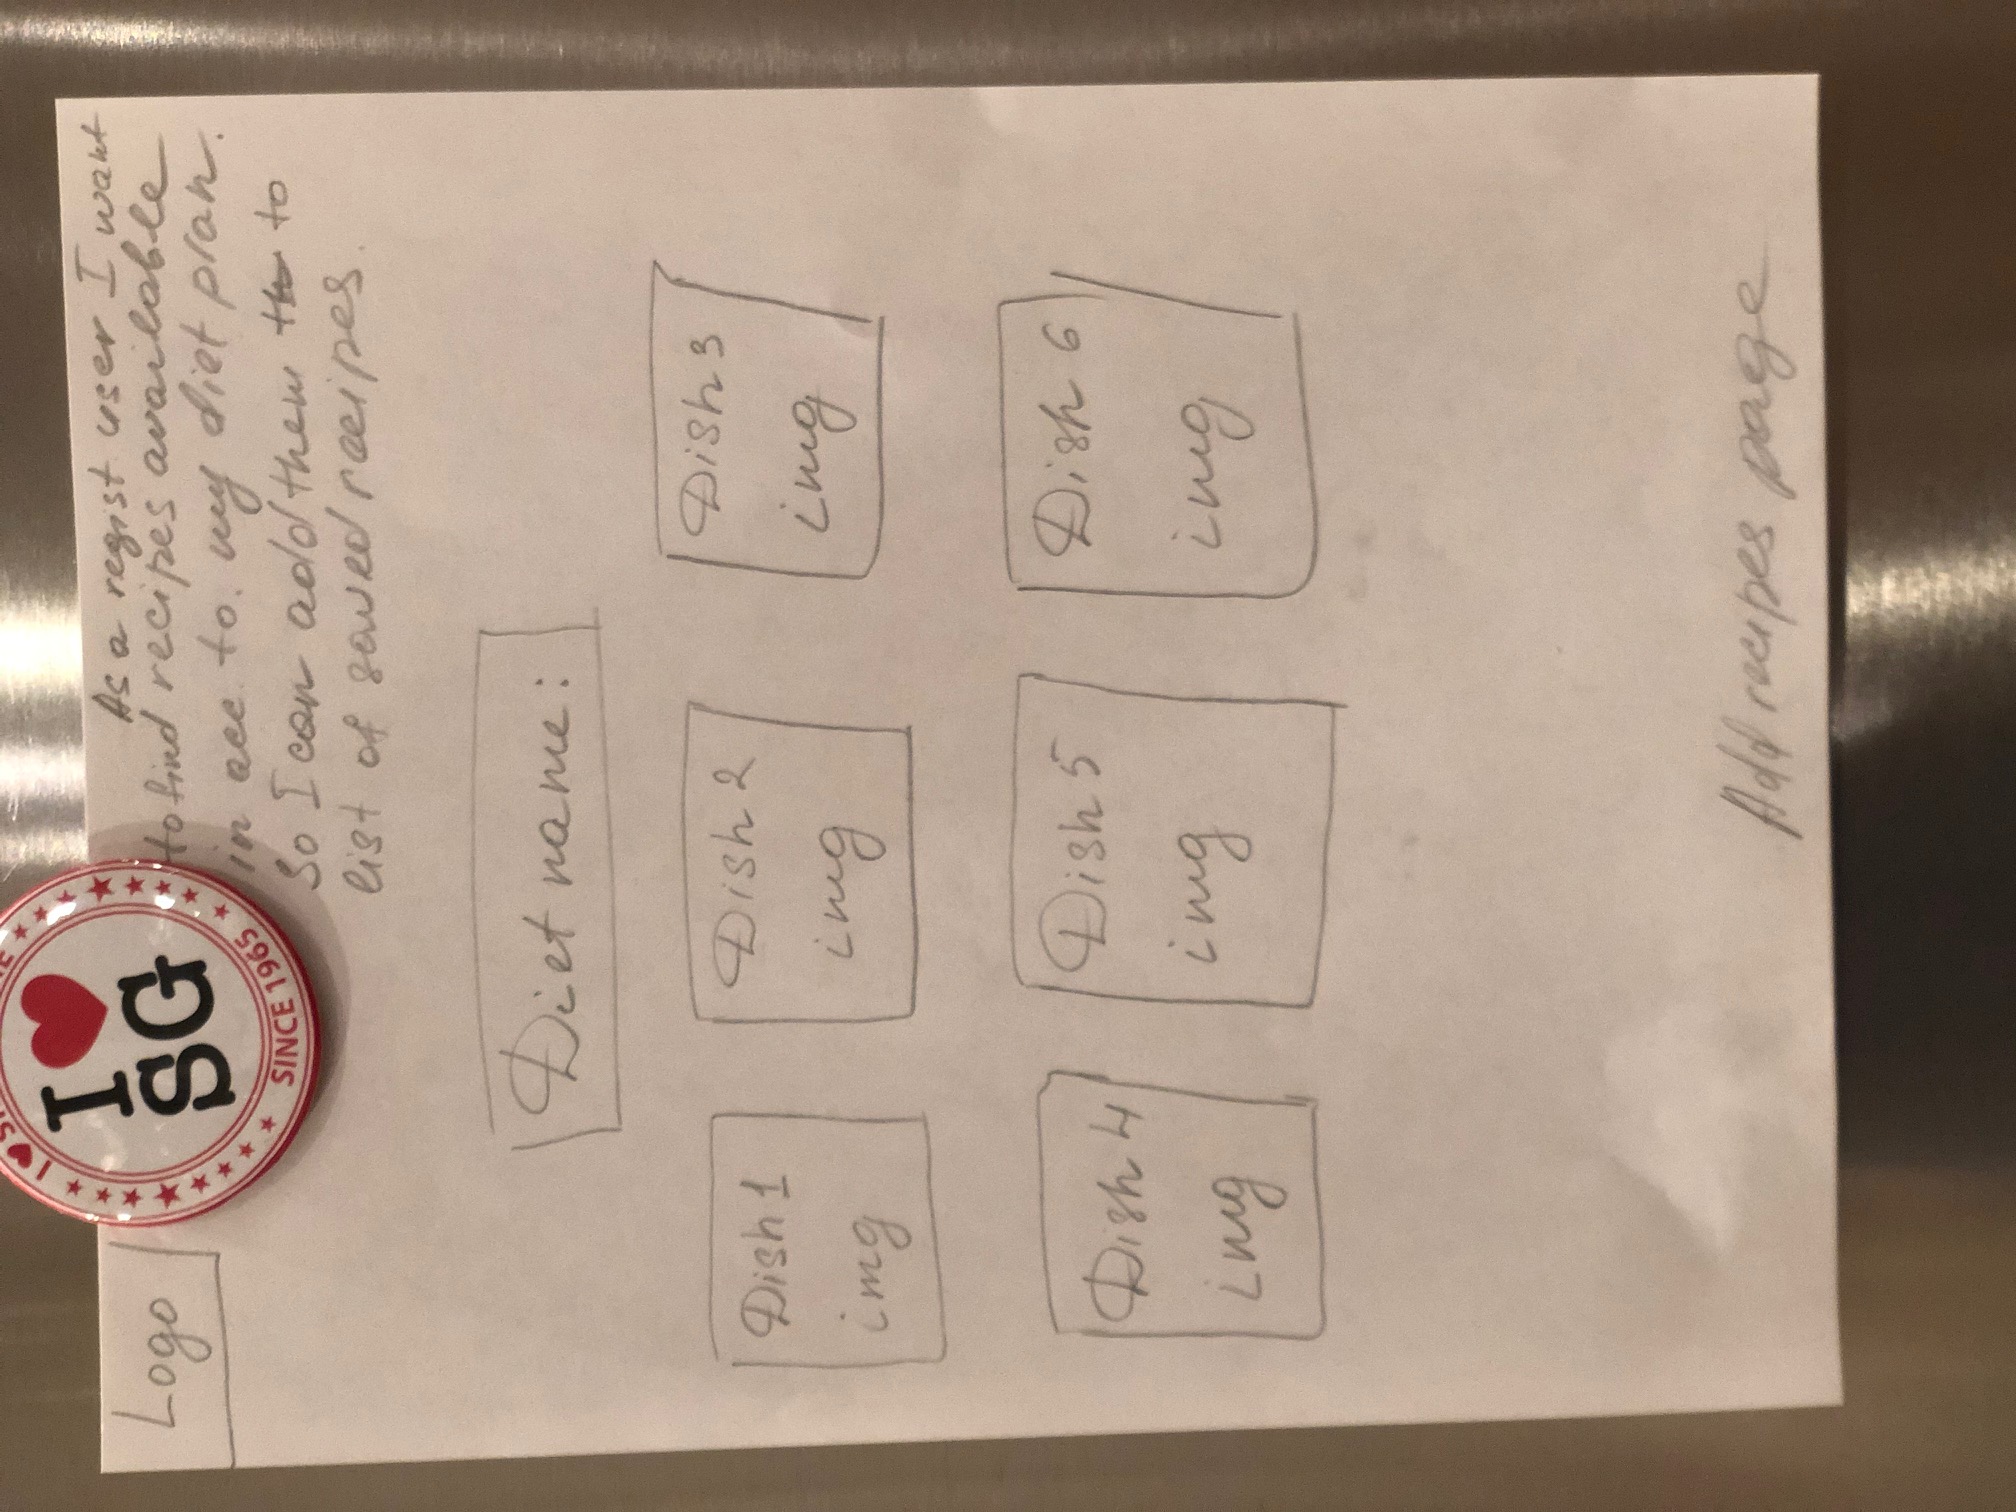 Logo
I ❤
SG
SINCE 1965
As a regist user I want
to find recipes available
in acc. to. my diet plan.
So I can add them to
list of saved recipes.
Diet name:
Dish 1
img
Dish 2
img
Dish 3
img
Dish 4
img
Dish 5
img
Dish 6
img
Add recipes page